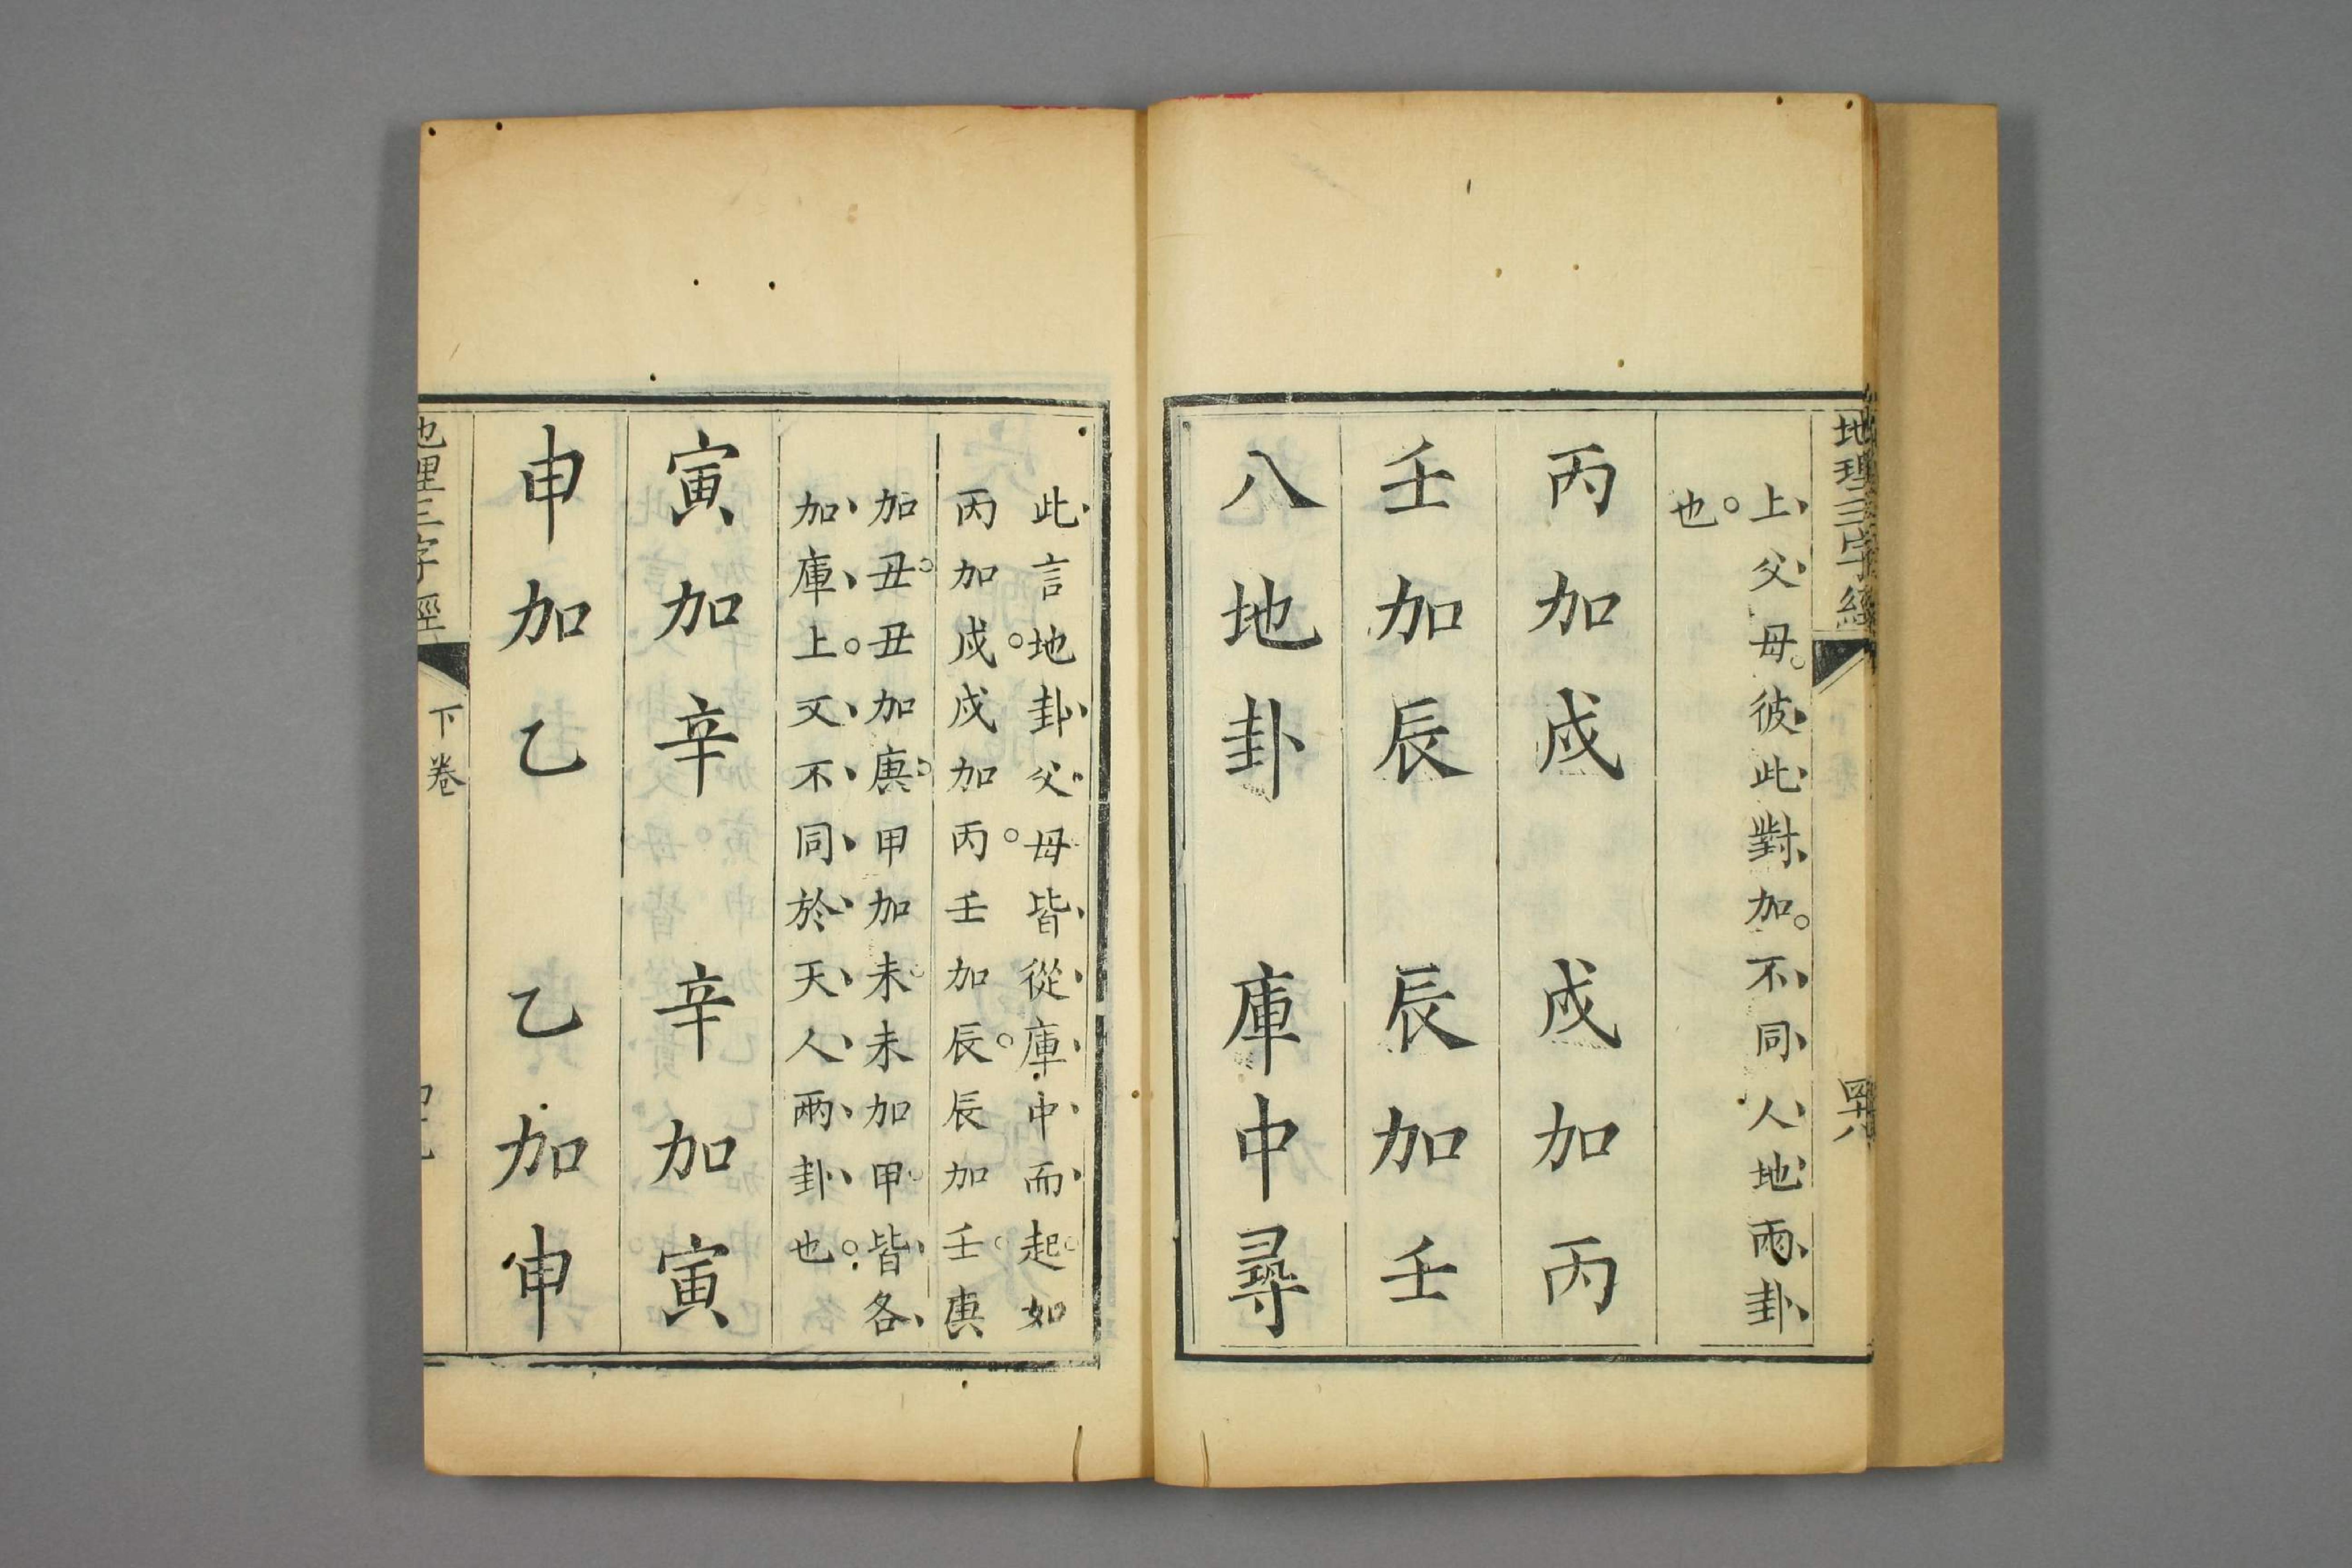 地理三字經
四十八
上父母彼此對加不同人地兩卦
也
丙加戌　戌加丙
壬加辰　辰加壬
八地卦　庫中尋
此言地卦父母皆從庫中而起如
丙加戌戌加丙壬加辰辰加壬庚
加丑丑加庚甲加未未加甲皆各
加庫上又不同於天人兩卦也
寅加辛　辛加寅
申加乙　乙加申
地理三字經
下卷